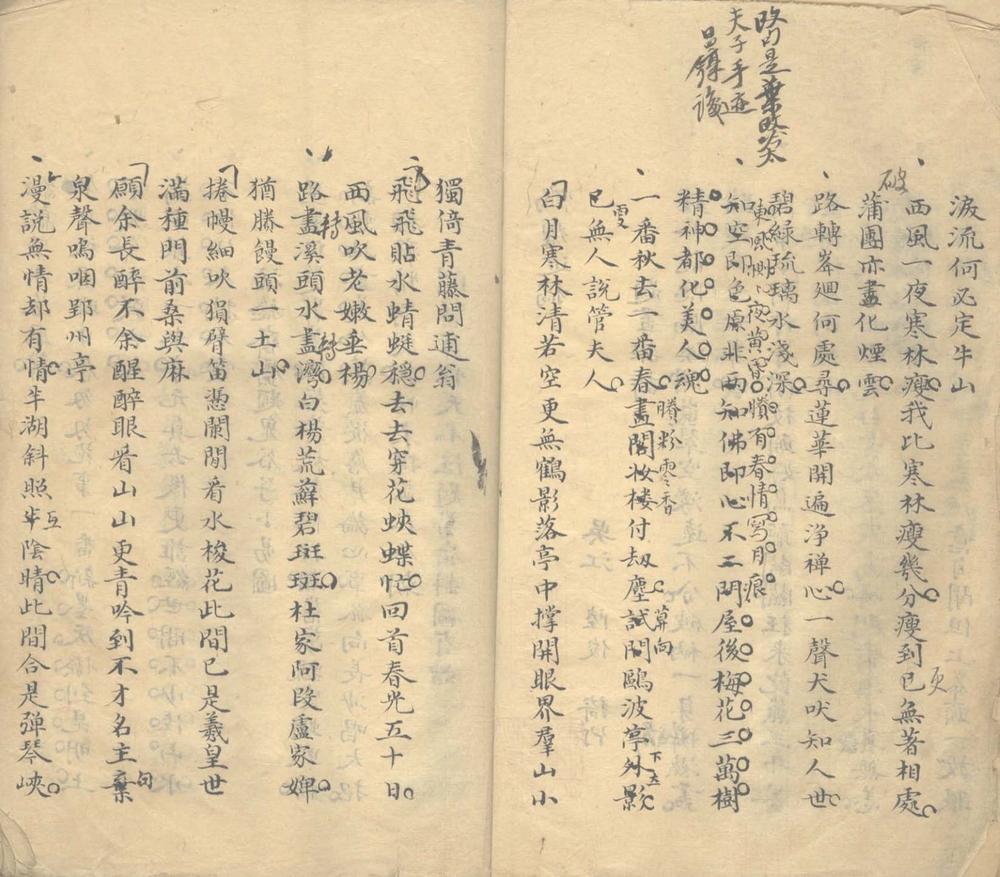 改句是葉畋岑
夫子手迹
昌鏵謹
淚流何必定牛山
西風一夜寒林瘦我比寒林瘦幾分瘦到已無著相處
更
破
蒲團亦盡化煙雲
路轉峯迴何處尋蓮華開遍淨禪心一聲犬吠知人世
碧綠琉璃水淺深
東風夜黃昏懶有春情寫月痕
知空即色原非兩知佛即心不二門屋後梅花三萬樹
精神都化美人魂
一番秋去一番春畫閣妝樓付刼塵試問鷗波亭外影
賸粉零香
算向
下
已無人說管夫人
雪
白月寒林清若空更無鶴影落亭中撑開眼界羣山小
獨倚青藤問逋翁
飛飛貼水蜻蜓穩去去穿花蛺蝶忙回首春光五十日
西風吹老嫩垂楊
路盡溪頭水盡灣白楊荒蘚碧斑斑杜家阿段盧家婢
轉
轉
猶勝饅頭一土山
捲幔細吹損臂笛憑闌閒看水梭花此間已是羲皇世
滿種門前桑與麻
願余長醉不余醒醉眼看山山更青吟到不才名主棄
句
泉聲嗚咽郢州亭
漫說無情却有情半湖斜照半陰晴此間合是彈琴峽
互